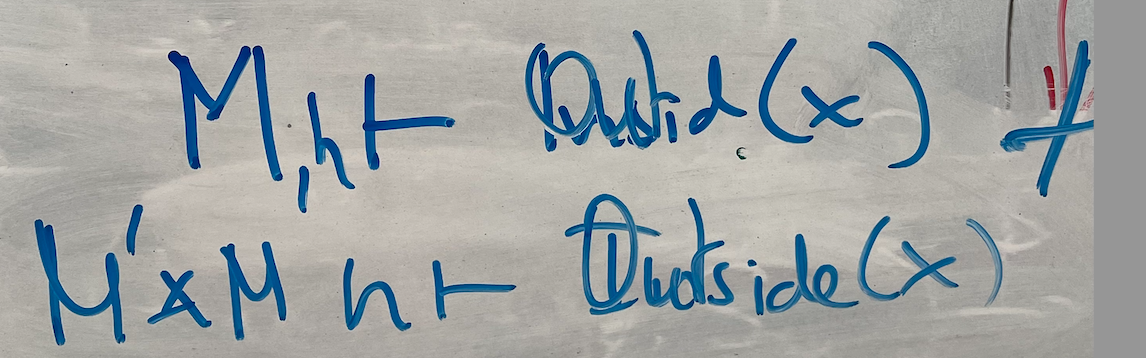 M, h ⊢ Outsid(x) +
M' x M h ⊢ Outside(x)